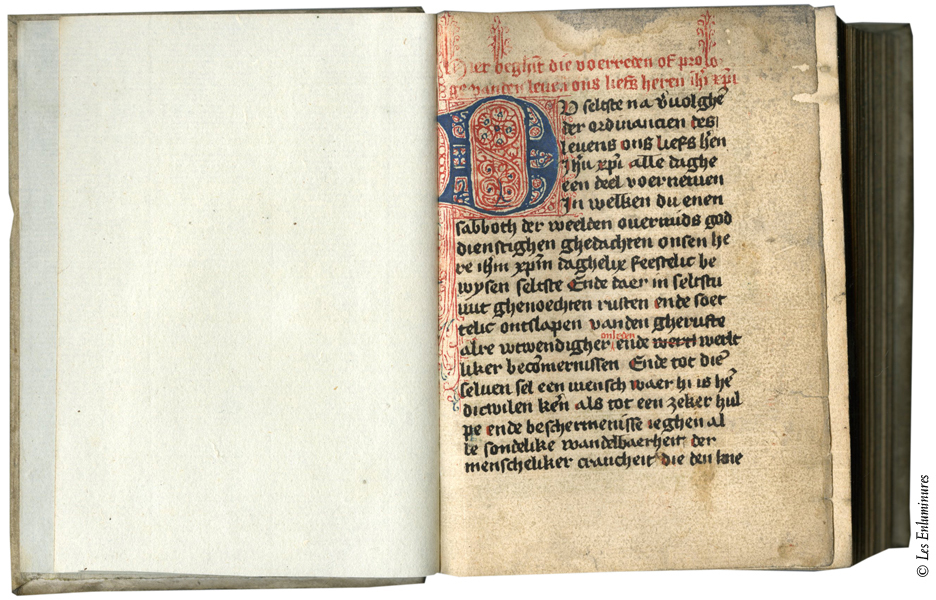 Hier beghīt die voerreden of prolo
ge vanden leuen ons liefs heren ihū xp̄i
DU seltste na v̄uolghē
der ordinancien des
leuens ons liefs hēn
Ihū xp̄i alle daghe
een deel voernemen
In welken du enen
sabboth der weelden ouermids god
dienstighen ghedachten onsen he
re ihm̄ xp̄m daghelix feestelic be
wysen seltste Ende daer in seltstu
mit ghenoechten rusten ende soet
telic ontslapen vanden gheruste
alre wtwendigher onleden ende werlt
liker becōmernissen Ende tot diē
seluen sel een mensch waer hi is hē
dicwilen kēn als tot een zeker hul
pe ende beschermenisse ieghen al
le sondelike wandelbaerheit der
menscheliker crancheit die den knie
© Les Enluminures